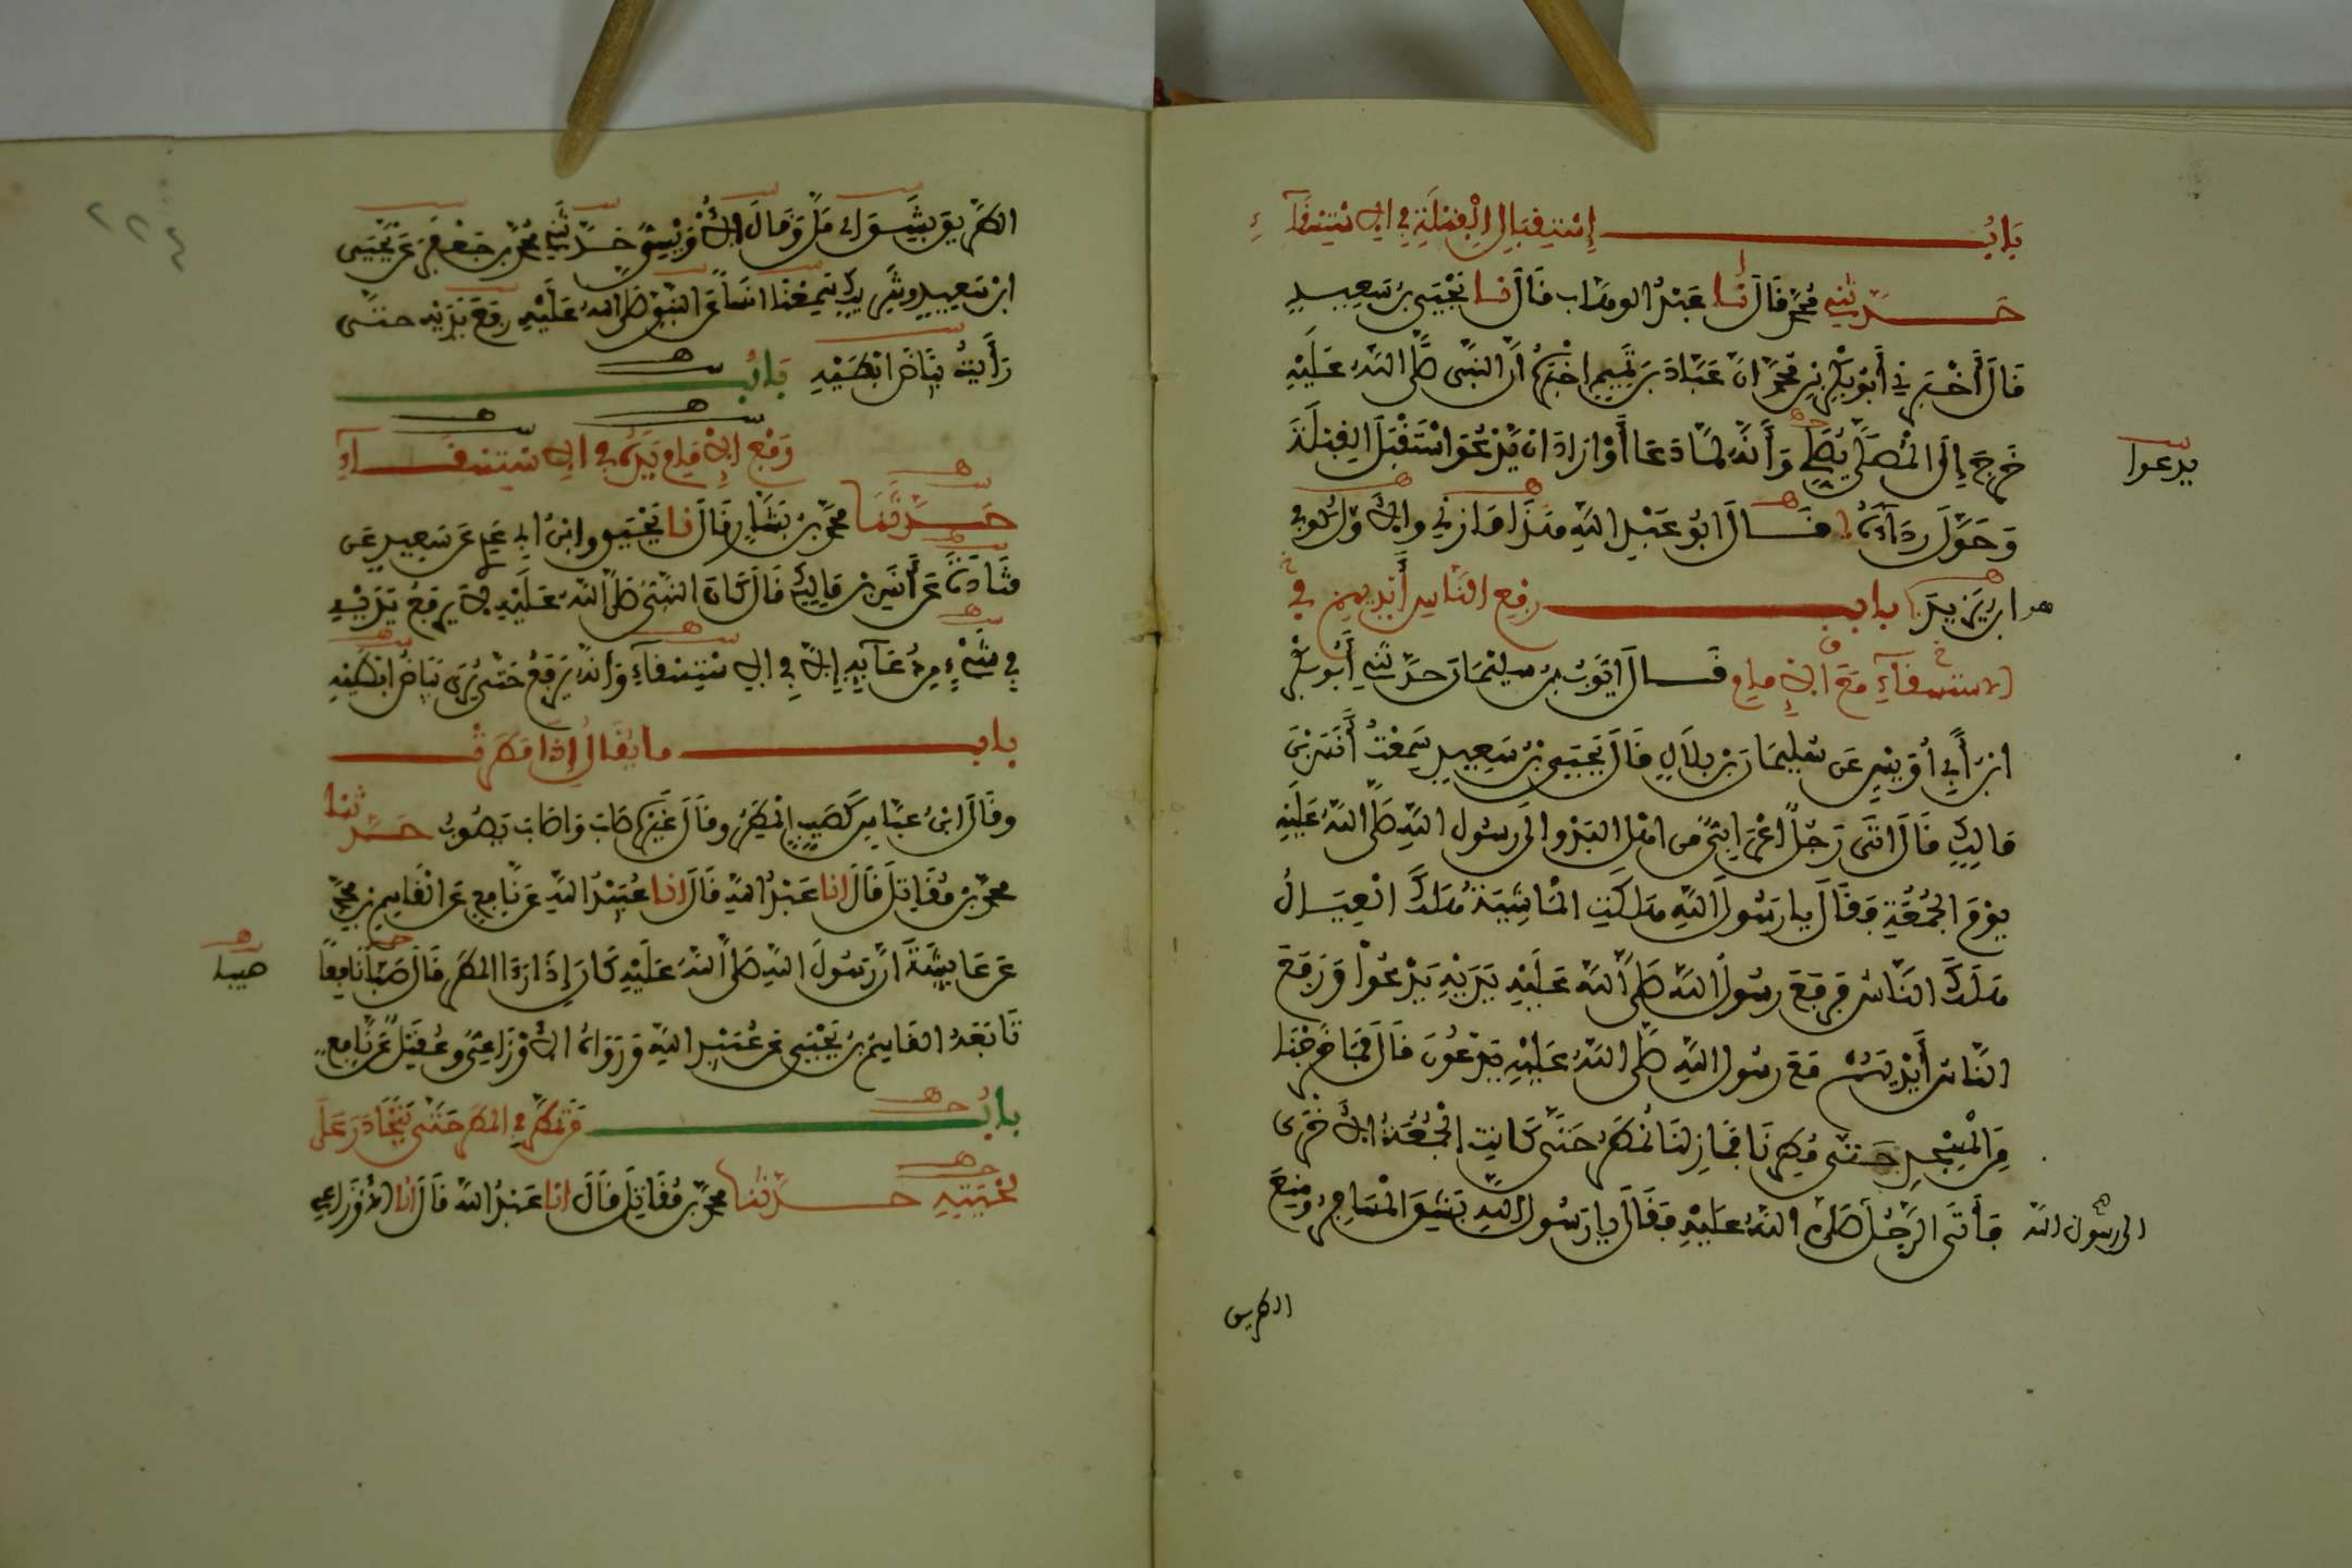 باب استقبال القبلة في الاستسقاء
حدثني محمد قال نا عبد الوهاب قال نا يحيى بن سعيد
قال أخبرني أبو بكر بن محمد ان عباد بن تميم اخبره أن النبي صلى الله عليه
خرج إلى المصلى يصلي وأنه لما دعا أو اراد ان يدعو استقبل القبلة
يدعوا
وحول رداءه قال ابو عبد الله هذا مازني والاول كوفي
هو ابن يزيد باب رفع الناس أيديهم في
الاستسقاء مع الامام قال ايوب بن سليمان حدثني أبو بكر
ابن أبي أويس عن سليمان بن بلال قال يحيى بن سعيد سمعت أنس بن
مالك قال اتى رجل اعرابي من اهل البدو الى رسول الله صلى الله عليه
يوم الجمعة فقال يا رسول الله هلكت الماشية هلك العيال
هلك الناس فرفع رسول الله صلى الله عليه يديه يدعوا ورفع
الناس أيديهم مع رسول الله صلى الله عليه يدعون قال فما خرجنا
من المسجد حتى مطرنا فما زلنا نمطر حتى كانت الجمعة الاخرى
فأتى الرجل صلى الله عليه فقال يا رسول الله بشق المسافر ومنع
الى رسول الله
الطريق
٢٢٤
الطريق بشق اي مل وقال الأويسي حدثني محمد بن جعفر عن يحيى
ابن سعيد وشريك سمعنا انسا عن النبي صلى الله عليه رفع يديه حتى
رأيت بياض ابطيه باب
رفع الامام يده في الاستسقاء
حدثنا محمد بن بشار قال نا يحيى وابن ابي عدي عن سعيد عن
قتادة عن أنس بن مالك قال كان النبي صلى الله عليه لا يرفع يديه
في شيء من دعائه إلا في الاستسقاء وانه يرفع حتى يرى بياض ابطيه
باب ما يقال إذا مطرت
وقال ابن عباس كصيب المطر وقال غيره صاب واصاب يصوب حدثنا
محمد بن مقاتل قال انا عبد الله قال انا عبيد الله عن نافع عن القاسم بن محمد
عن عايشة ان رسول الله صلى الله عليه كان إذا رءا المطر قال صبا نافعا
صيبا
تابعه القاسم بن يحيى عن عبيد الله ورواه الاوزاعي وعقيل عن نافع
باب من تمطر في المطر حتى يتحادر على
لحيته حدثنا محمد بن مقاتل قال انا عبد الله قال أنا الأوزاعي